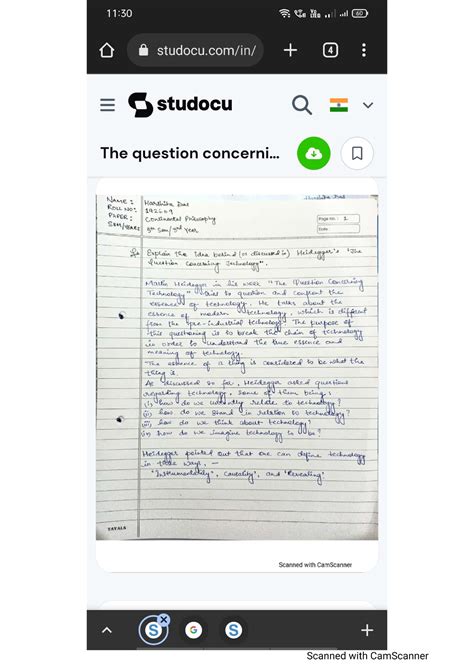 11:30
60
studocu.com/in/
4
studocu
The question concerni...
NAME :
ROLL NO :
PAPER : Continental Philosophy
SEM/YEAR : 5th Sem/3rd Year
Page No. : 1
Date
Explain the idea behind (or discussed in) Heidegger's "The
Question Concerning Technology".
Martin Heidegger in his work "The Question Concerning
Technology" tries to question and confront the
essence of technology. He talks about the
essence of modern technology, which is different
from the pre-industrial technology. The purpose of
this questioning is to break the chain of technology
in order to understand the true essence and
meaning of technology.
The essence of a thing is considered to be what the
thing is.
As discussed so far, Heidegger asked questions
regarding technology, some of them being :
(i) how do we currently relate to technology?
(ii) how do we stand in relation to technology?
(iii) how do we think about technology?
(iv) how do we imagine technology to be?
Heidegger pointed out that one can define technology
in three ways, —
"Instrumentality", "Causality", and "Revealing"
Scanned with CamScanner
Scanned with CamScanner